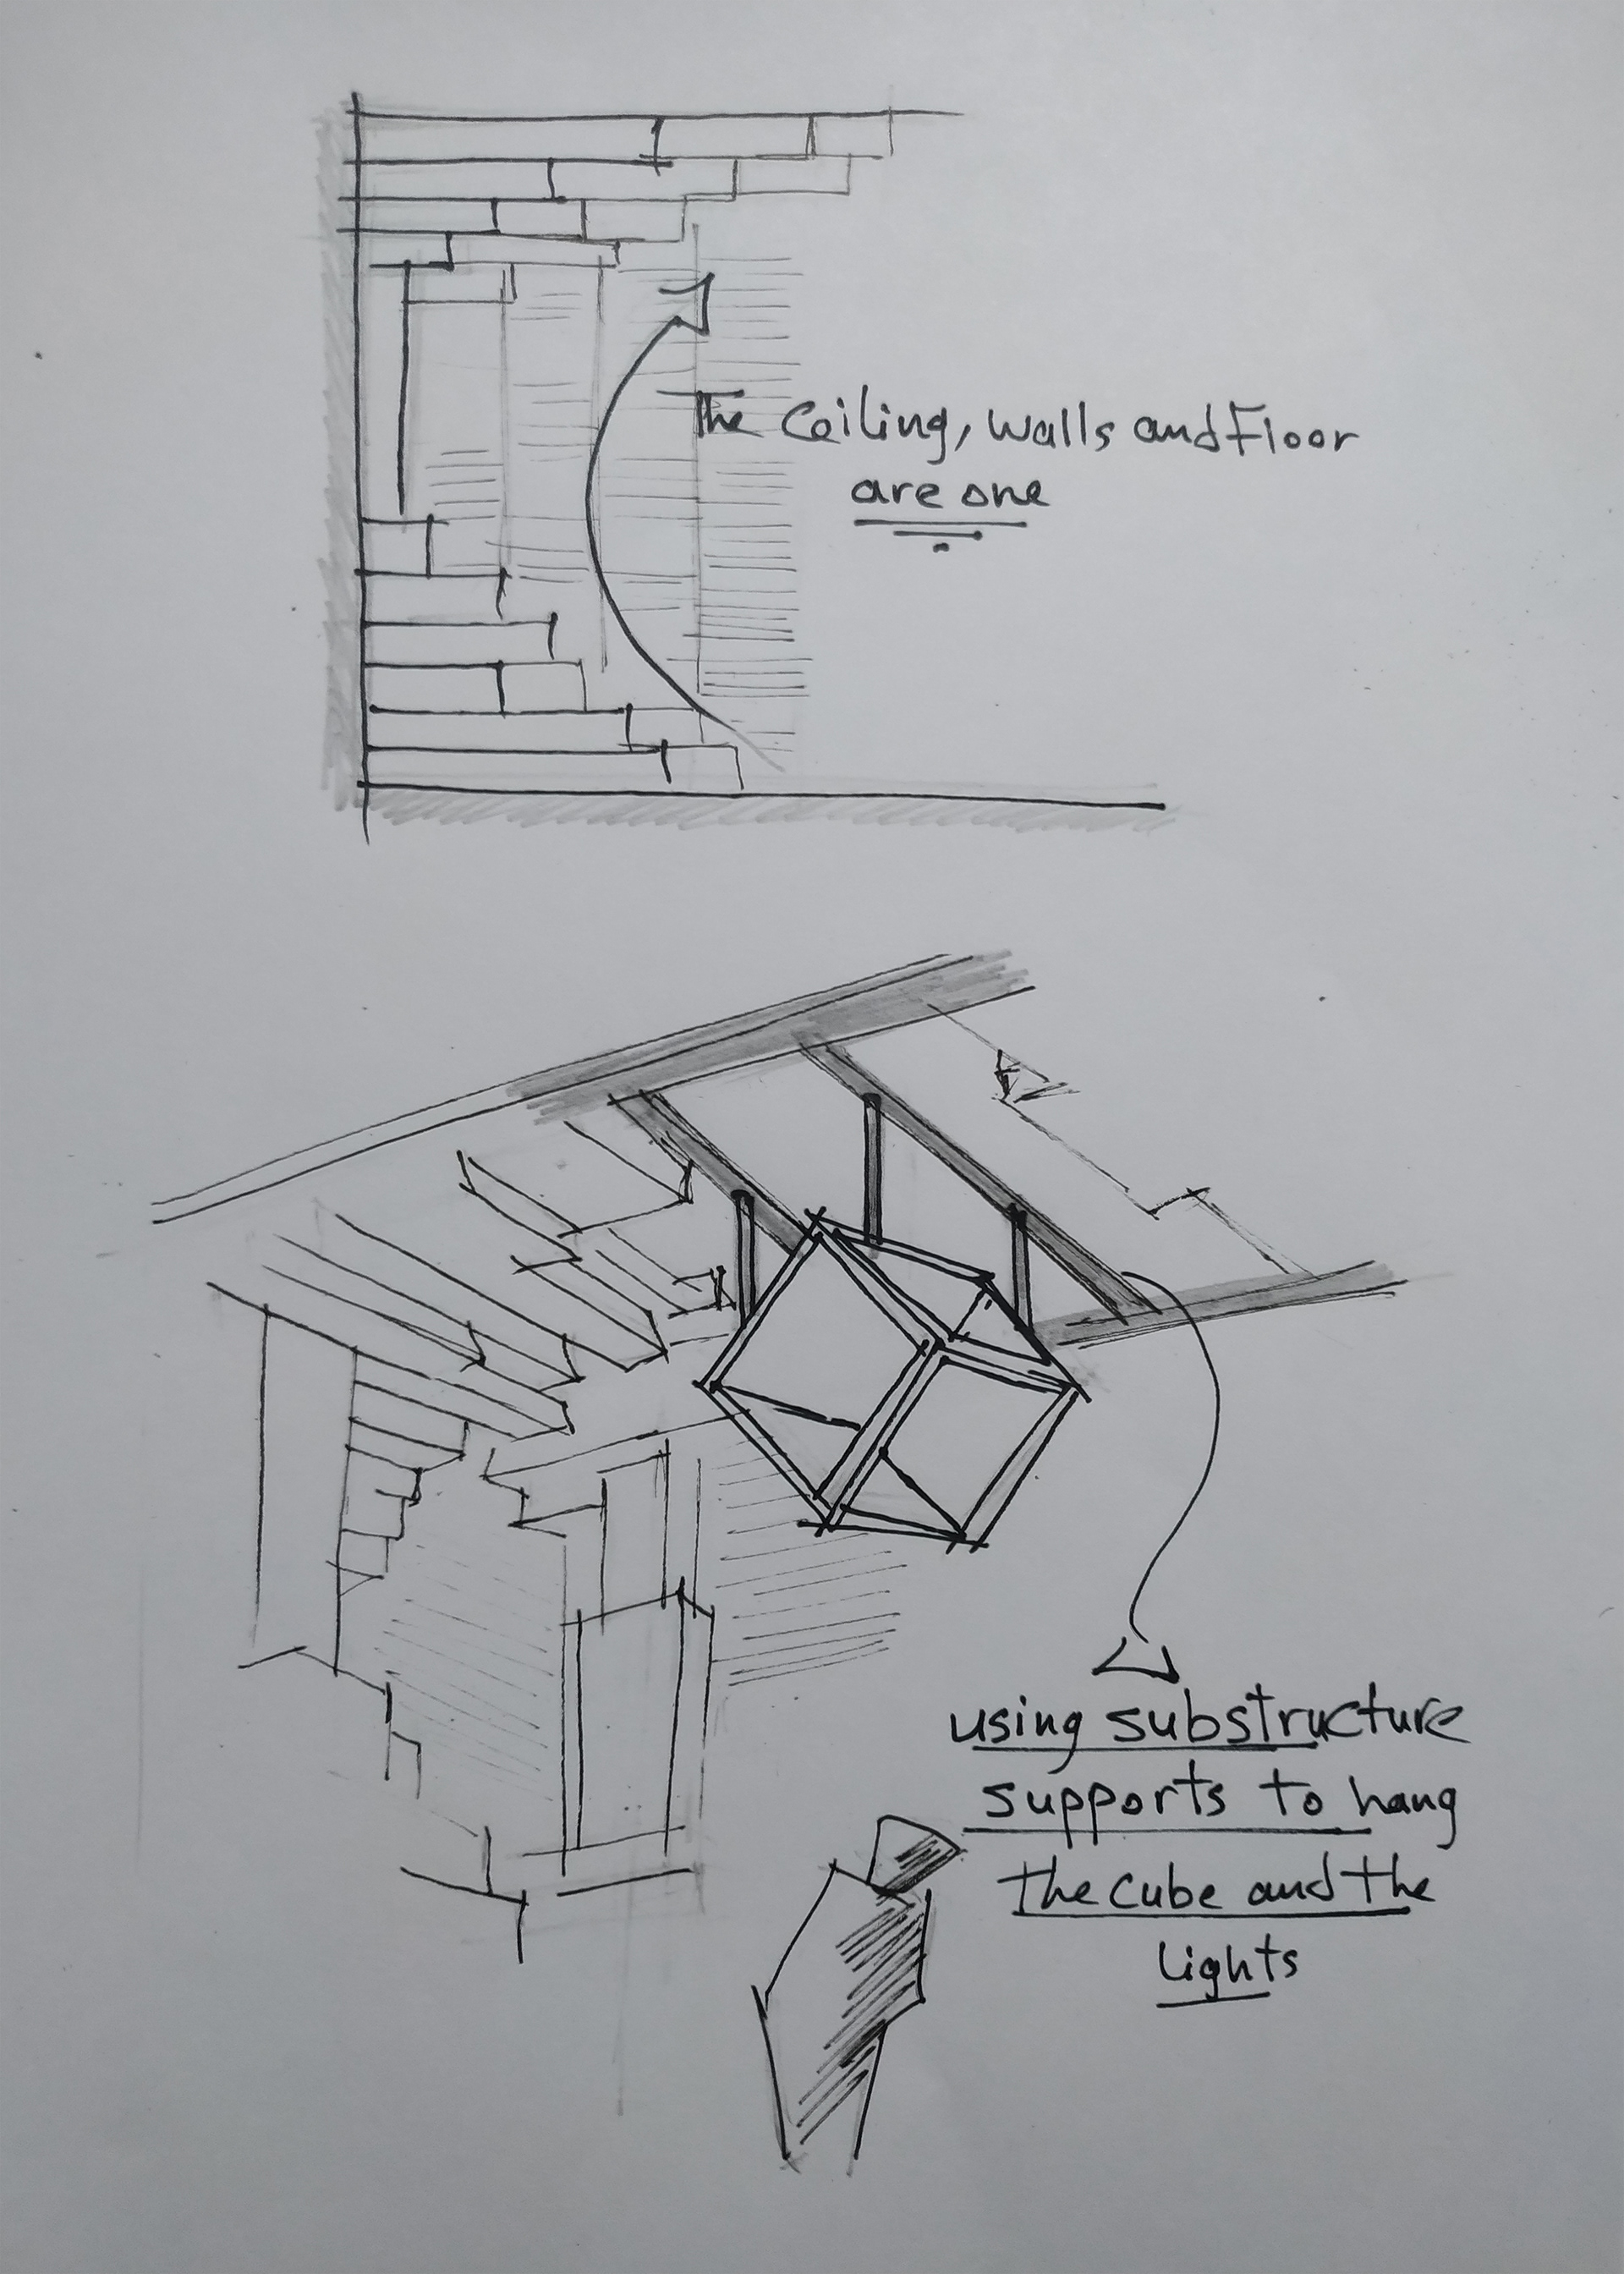 The ceiling, walls and Floor
are one
using substructure
supports to hang
the cube and the
lights